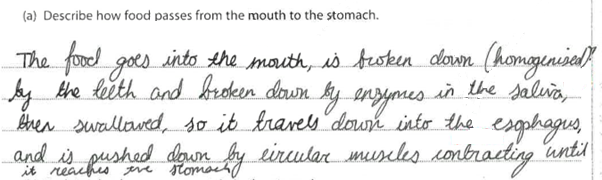 (a) Describe how food passes from the mouth to the stomach.
The food goes into the mouth, is broken down (homogenised)?
by the teeth and broken down by enzymes in the saliva,
then swallowed, so it travels down into the esophagus,
and is pushed down by circular muscles contracting until
it reaches the stomach